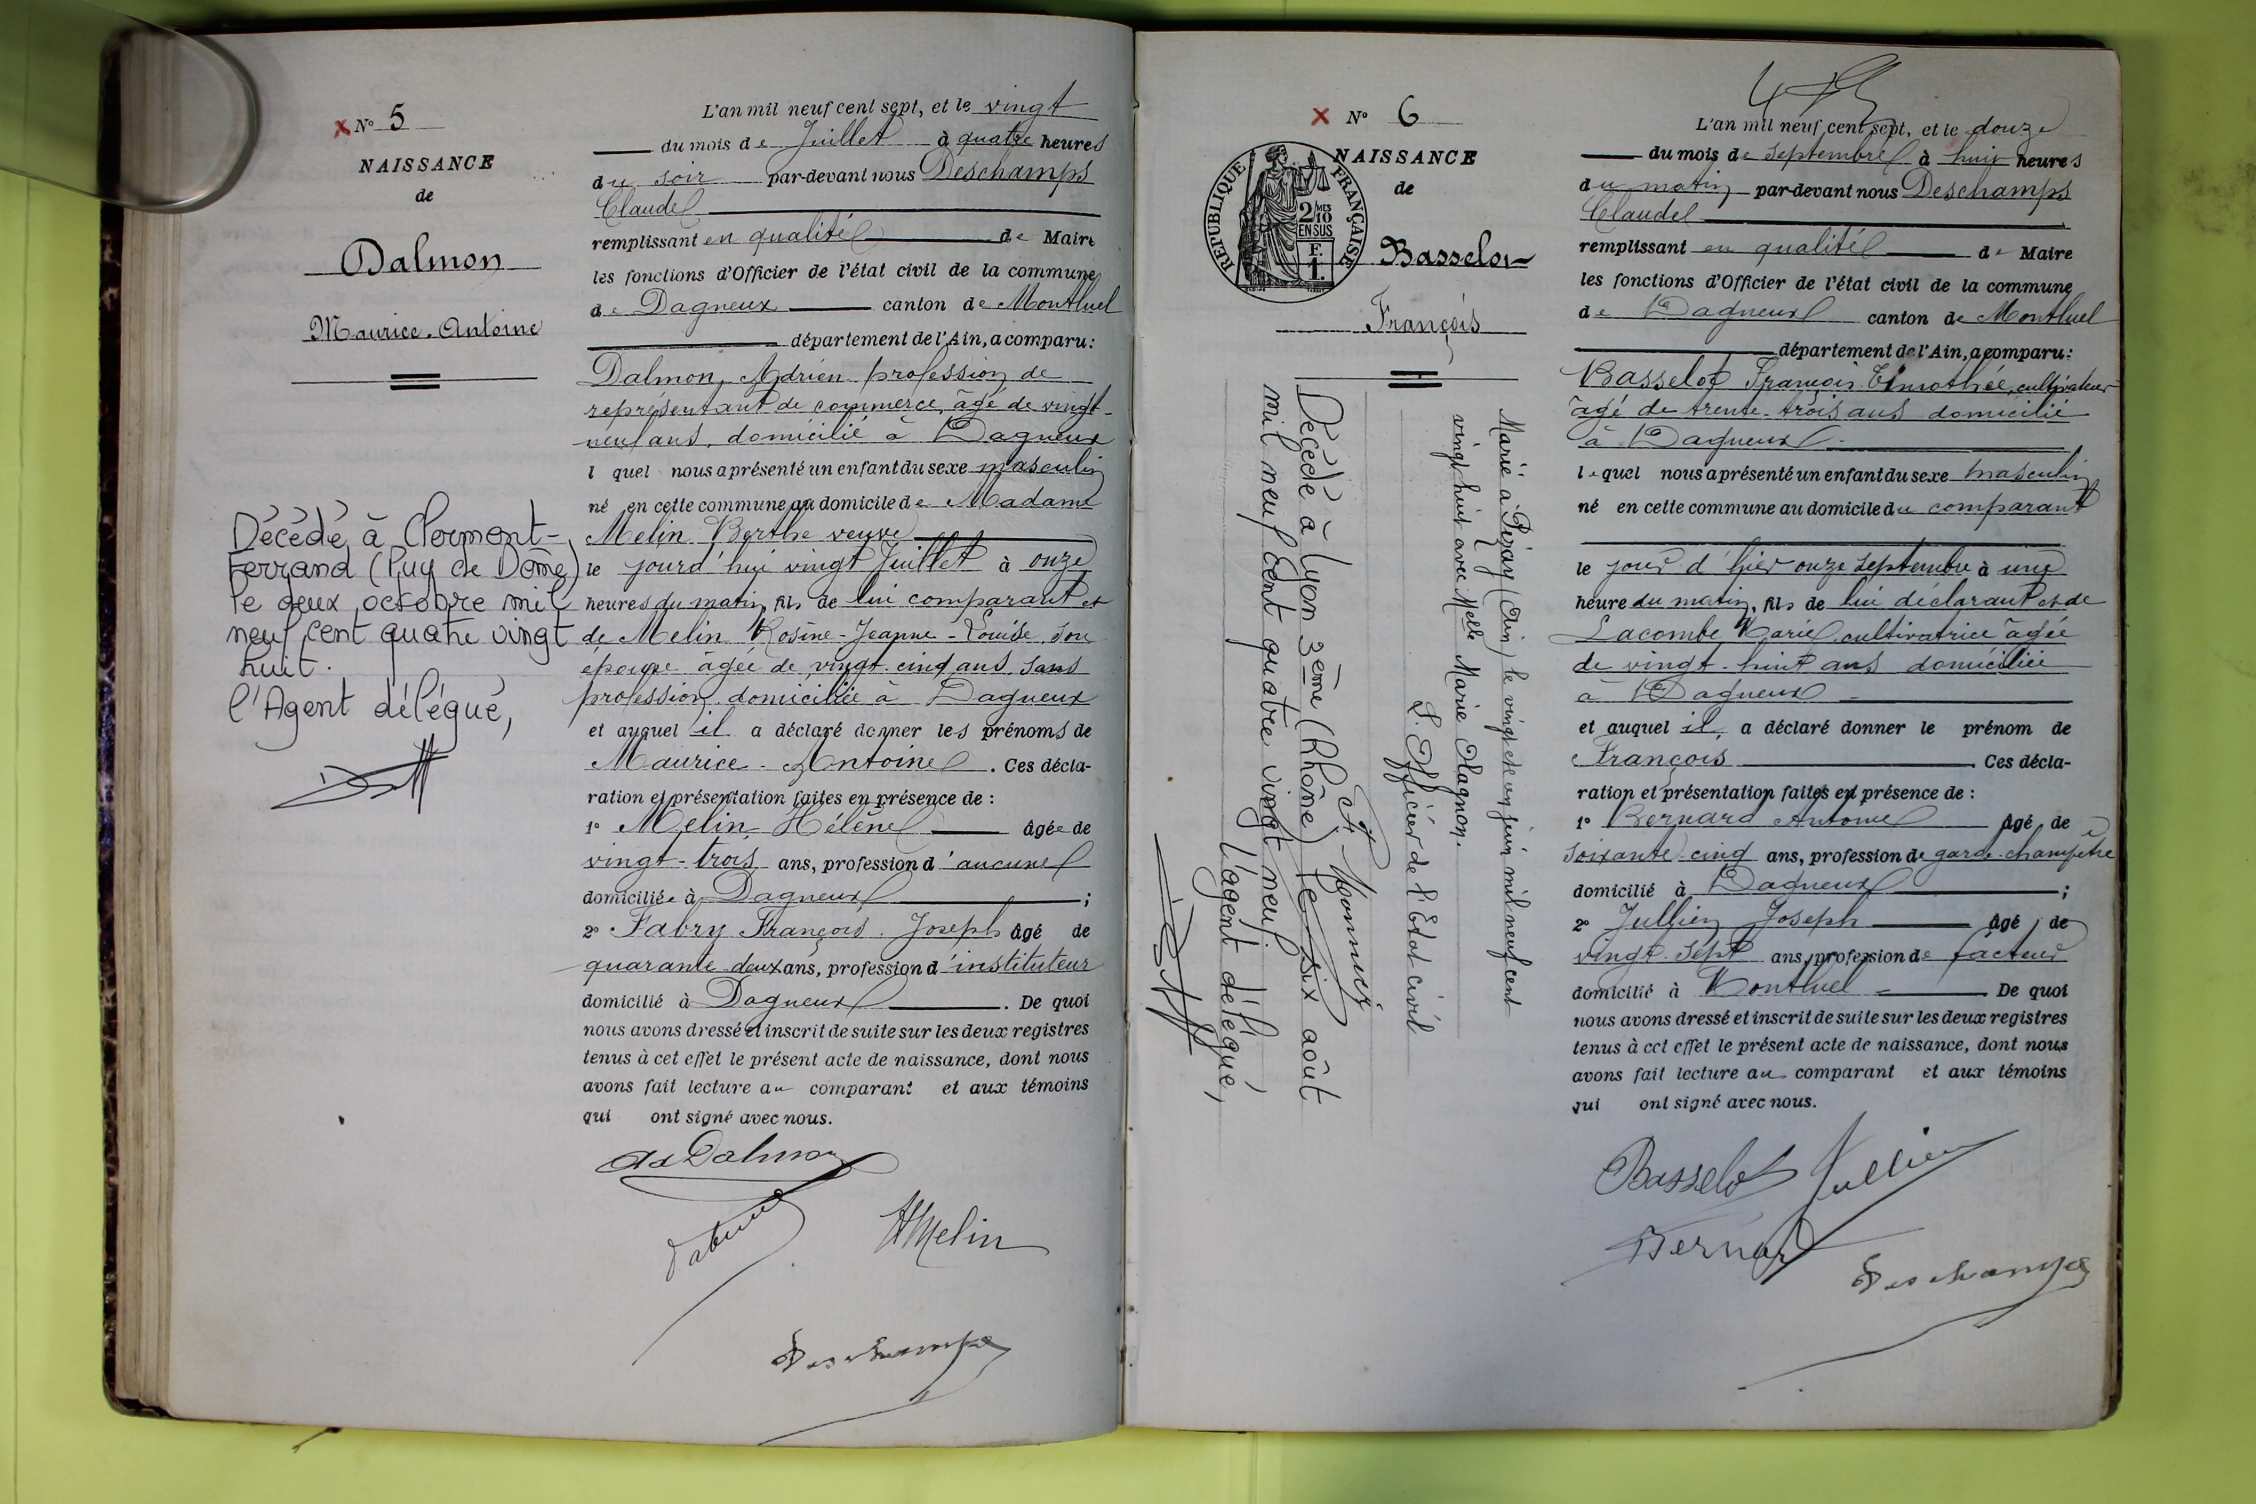 N° 5
NAISSANCE
de
Dalmon
Maurice-Antoine
Décédé à Clermont-
Ferrand (Puy de Dôme)
le deux octobre mil
neuf cent quatre vingt
huit.
l'Agent délégué,
L'an mil neuf cent sept, et le vingt
du mois de Juillet à quatre heures
du soir par-devant nous Deschamps
Claude
remplissant en qualité de Maire
les fonctions d'Officier de l'état civil de la commune
de Dagneux canton de Montluel
département de l'Ain, a comparu :
Dalmon, Adrien profession de
représentant de commerce, âgé de vingt-
neuf ans, domicilié à Dagneux
l quel nous a présenté un enfant du sexe masculin
né en cette commune au domicile de Madame
Melin Berthe veuve
le jourd'hui vingt Juillet à onze
heures du matin, fils de lui comparant et
de Melin Rosine-Jeanne-Louise, son
épouse âgée de vingt-cinq ans, sans
profession, domiciliée à Dagneux
et auquel il a déclaré donner les prénoms de
Maurice-Antoine. Ces décla-
ration et présentation faites en présence de :
1° Melin Hélène âgée de
vingt-trois ans, profession d'aucune
domiciliée à Dagneux ;
2° Fabry François Joseph âgé de
quarante deux ans, profession d'instituteur
domicilié à Dagneux. De quoi
nous avons dressé et inscrit de suite sur les deux registres
tenus à cet effet le présent acte de naissance, dont nous
avons fait lecture au comparant et aux témoins
qui ont signé avec nous.
Ad Dalmon
HMelin
Deschamps
N° 6
NAISSANCE
de
RÉPUBLIQUE FRANÇAISE
2/10 MES
EN SUS
F.
1.
Basselot
François
Marié à Pizay (Ain) le vingt et un juin mil neuf cent
vingt huit avec Melle Marie Olagnon.
L'Officier de l'Etat civil
Décédé à Lyon 3ème (Rhône) le six août
mil neuf cent quatre vingt neuf
l'agent délégué,
L'an mil neuf cent sept, et le douze
du mois de septembre à huit heures
du matin par-devant nous Deschamps
Claude
remplissant en qualité de Maire
les fonctions d'Officier de l'état civil de la commune
de Dagneux canton de Montluel
département de l'Ain, a comparu :
Basselot François Timothée, cultivateur
âgé de trente-trois ans domicilié
à Dagneux
lequel nous a présenté un enfant du sexe masculin
né en cette commune au domicile du comparant
le jour d'hier onze septembre à une
heure du matin, fils de lui déclarant et de
Lacombe Marie, cultivatrice âgée
de vingt-huit ans domiciliée
à Dagneux
et auquel il a déclaré donner le prénom de
François. Ces décla-
ration et présentation faites en présence de :
1° Bernard Antoine âgé de
soixante cinq ans, profession de garde-champêtre
domicilié à Dagneux ;
2° Jullien Joseph âgé de
vingt-sept ans, profession de facteur
domicilié à Montluel. De quoi
nous avons dressé et inscrit de suite sur les deux registres
tenus à cet effet le présent acte de naissance, dont nous
avons fait lecture au comparant et aux témoins
qui ont signé avec nous.
Basselot Jullien
Bernard
Deschamps